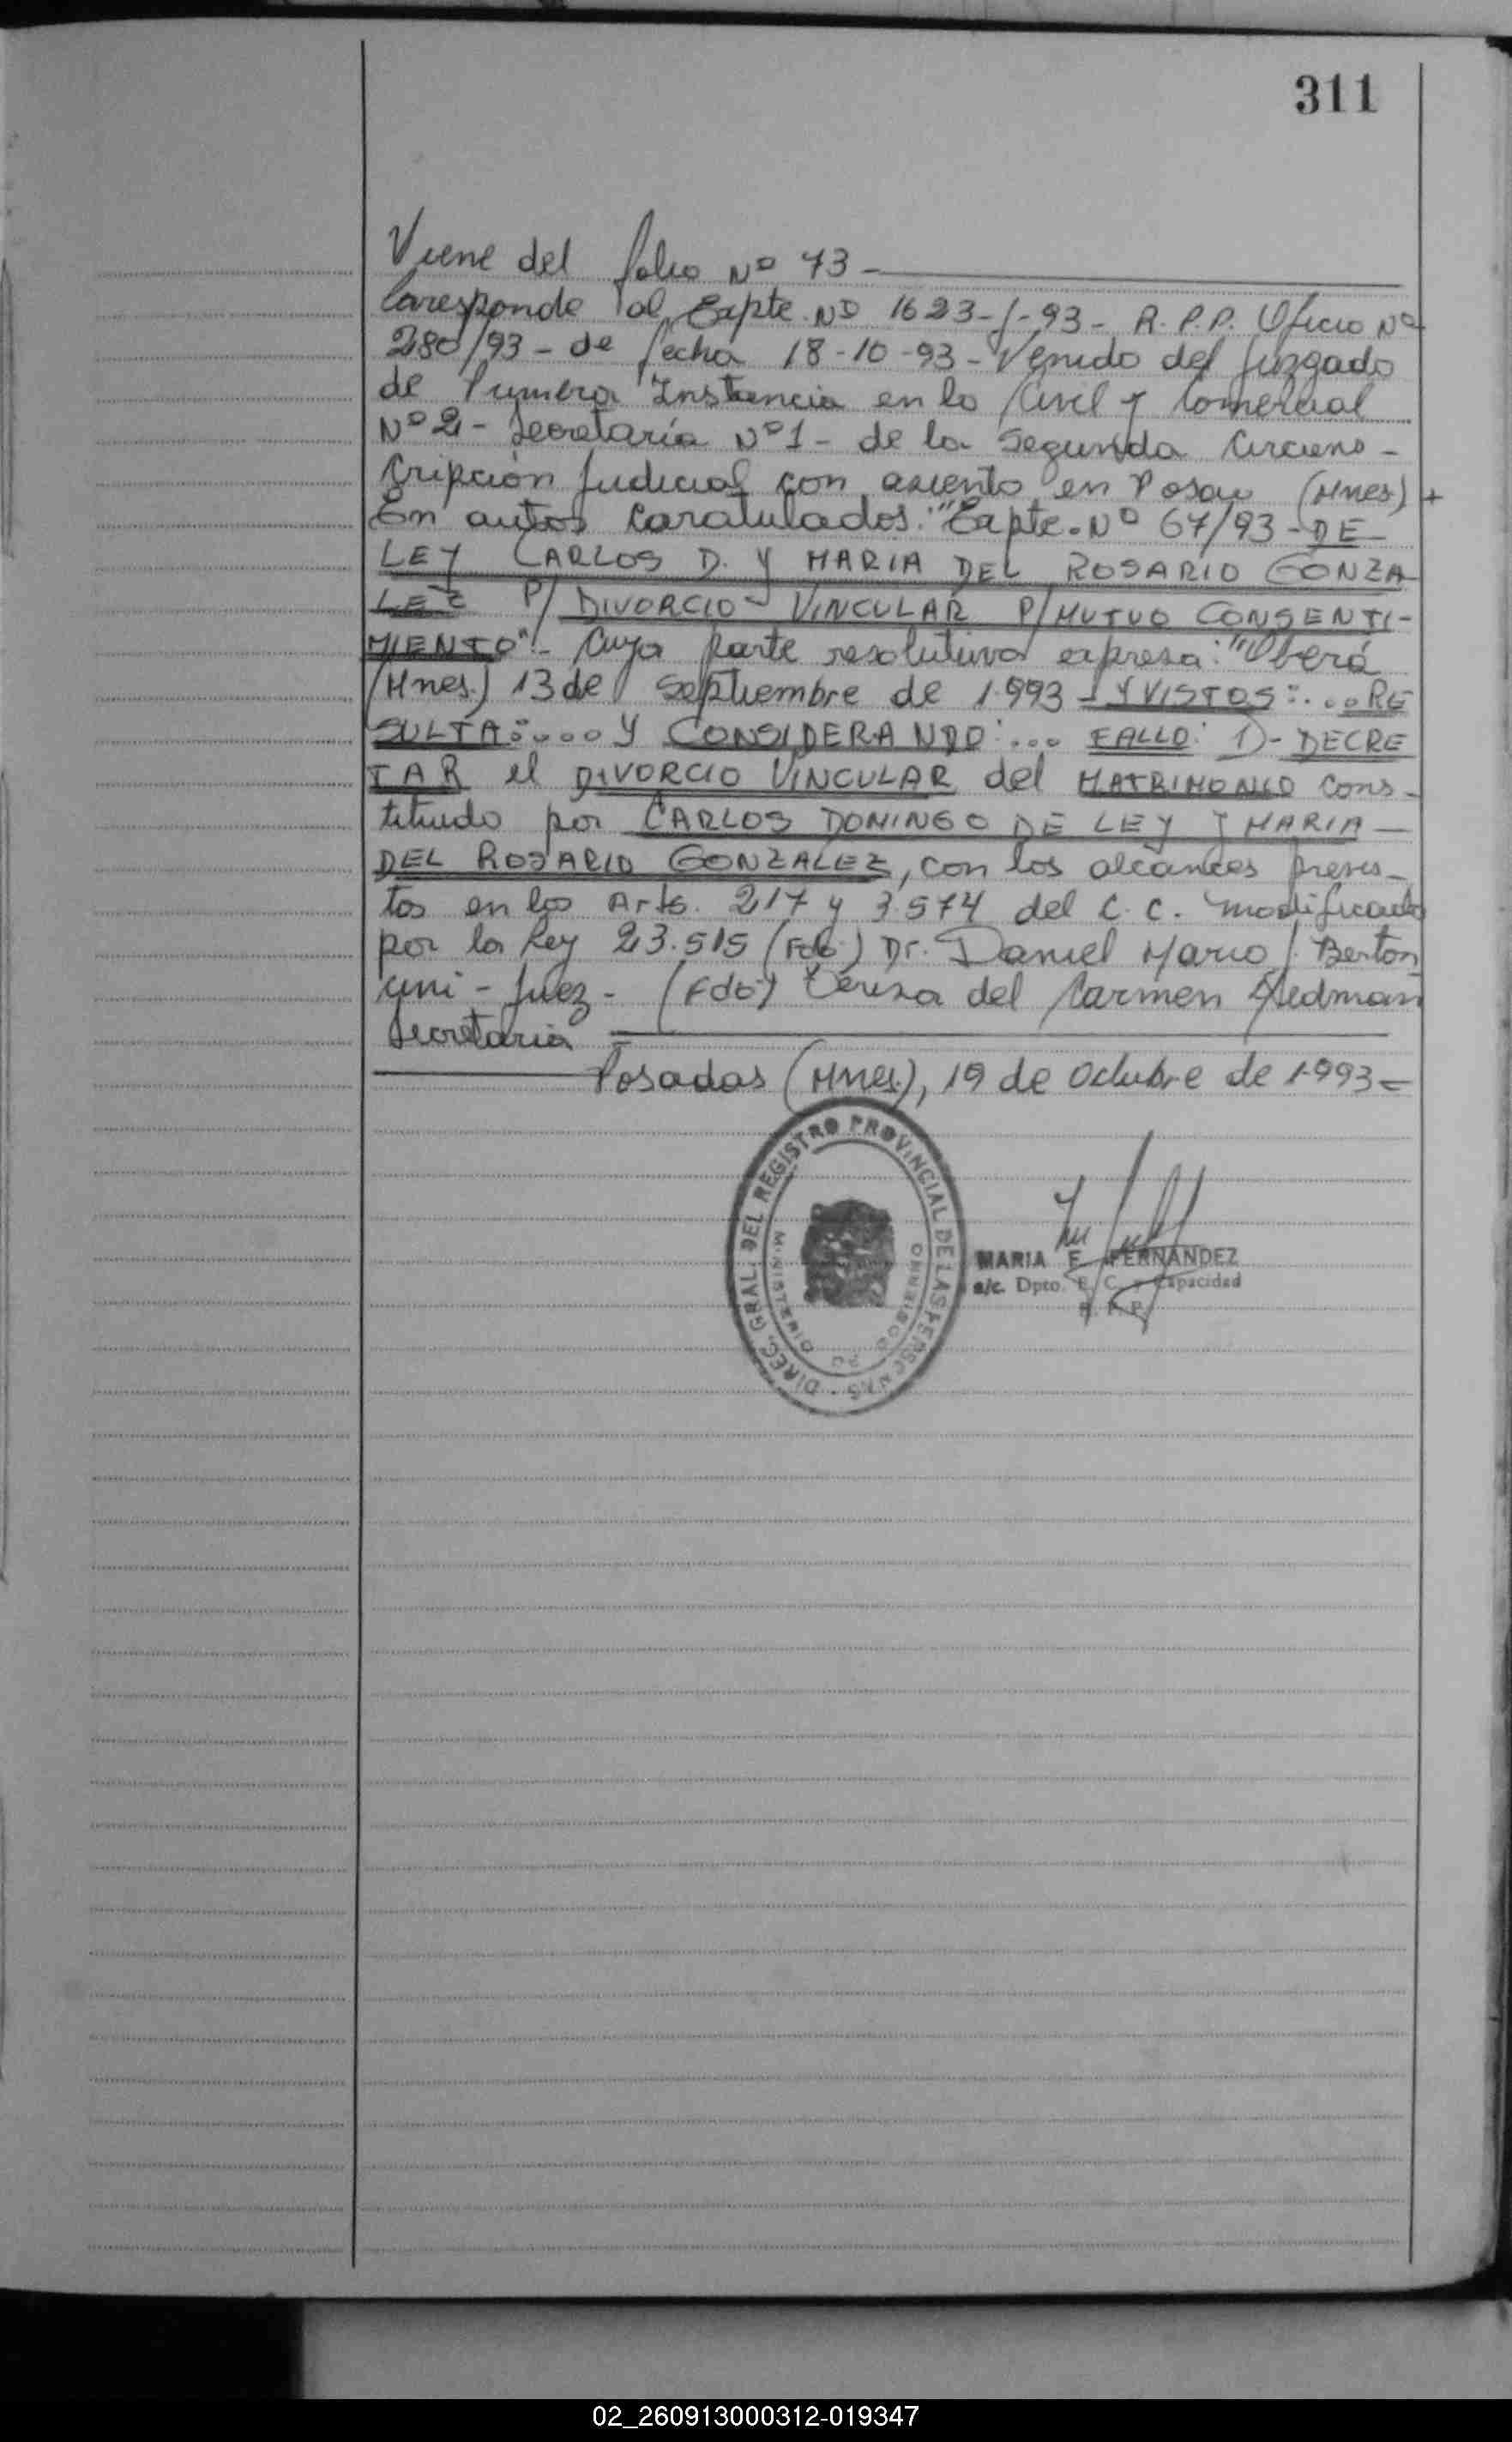 311
Viene del folio Nº 73 -
Corresponde al Expte. Nº 1623-J-93 - R.P.P. Oficio Nº
280/93 - de fecha 18-10-93 - Venido del Juzgado
de Primera Instancia en lo Civil y Comercial
Nº 2 - Secretaría Nº 1 - de la Segunda Circuns-
cripción Judicial con asiento en (Mnes) +
En autos Caratulados: "Expte. Nº 67/93 - DE
LEY CARLOS D. Y MARIA DEL ROSARIO GONZA
LEZ P/ DIVORCIO VINCULAR P/MUTUO CONSENTI-
MIENTO" - Cuya parte resolutiva expresa: "Oberá
(Mnes.) 13 de Septiembre de 1.993 - Y VISTOS: ... RE
SULTA: .... Y CONSIDERANDO: ... FALLO: 1) - DECRE
TAR el DIVORCIO VINCULAR del MATRIMONIO cons-
tituido por CARLOS DOMINGO DE LEY Y MARIA
DEL ROSARIO GONZALEZ, con los alcances previs-
tos en los Arts. 217 y 3.574 del C.C. modificado
por la Ley 23.515 (Fdo) Dr. Daniel Mario J. Berton
cini - Juez - (Fdo) Teresa del Carmen Hedman
Secretaria
Posadas (Mnes.), 19 de Octubre de 1.993 =
DIREC. GRAL. DEL REGISTRO PROVINCIAL DE LAS PERSONAS
MINISTERIO DE GOBIERNO
MARIA E. FERNANDEZ
a/c. Dpto. E/C. y Capacidad
R. P. P.
02_260913000312-019347